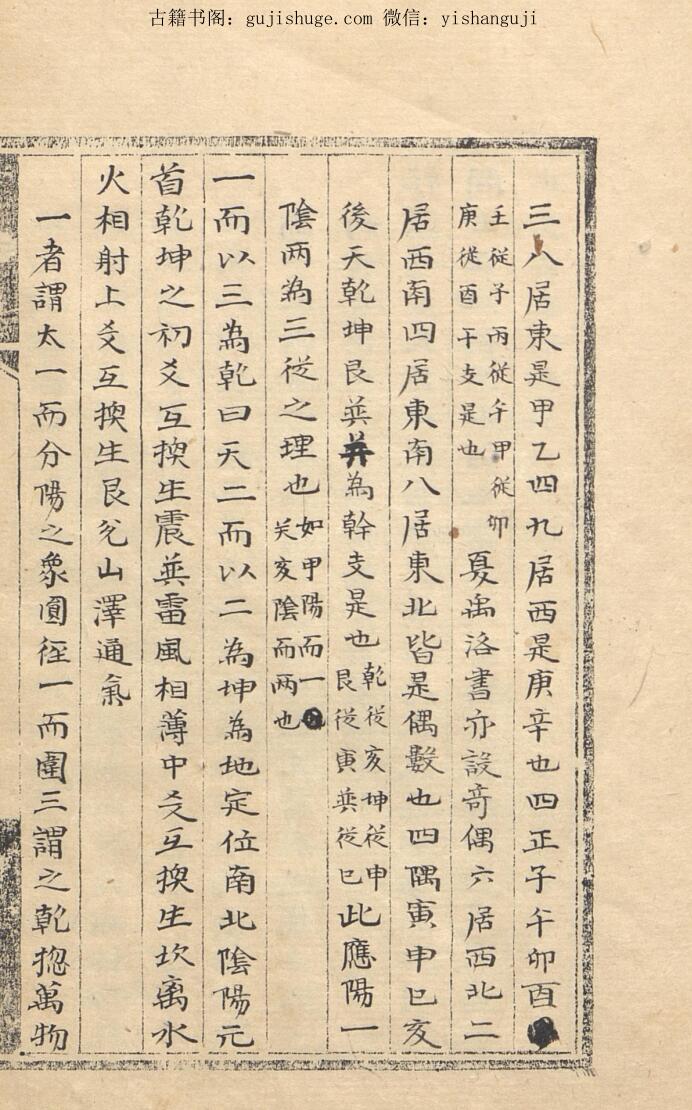 古籍书阁：gujishuge.com 微信：yishanguji
三八居東是甲乙四九居西是庚辛也四正子午卯酉
壬從子丙從午甲從卯
庚從酉干支是也
夏禹洛書亦設竒偶六居西北二
居西南四居東南八居東北皆是偶數也四隅寅申巳亥
後天乾坤艮巽為幹支是也
乾從亥坤從申
艮從寅巽從巳
此應陽一
陰两為三從之理也
如甲陽而一
癸亥陰而两也
一而以三為乾曰天二而以二為坤為地定位南北陰陽元
首乾坤之初爻互換生震巽雷風相薄中爻互換生坎离水
火相射上爻互換生艮兊山澤通氣
一者謂太一而分陽之象圓徑一而圍三謂之乾揔萬物